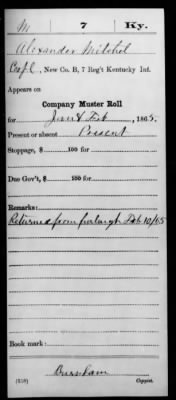 M 7 Ky.
Alexander Mitchel
Corpl, New Co. B, 7 Reg't Kentucky Inf.
Appears on
Company Muster Roll
for Jan & Feb, 1865.
Present or absent Present
Stoppage, $ 100 for
Due Gov't, $ 100 for
Remarks:
Returned from furlough Feb 10/65
Book mark:
Burnham
(358) Copyist.